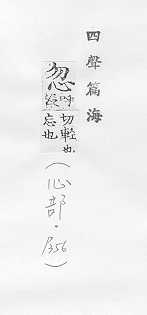 四聲篇海
忽
呼
切輕也
忘也
(心部·356)